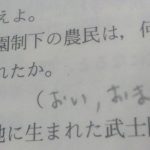 えよ。
園制下の農民は,何
れたか。
(おい,おま
地に生まれた武士団